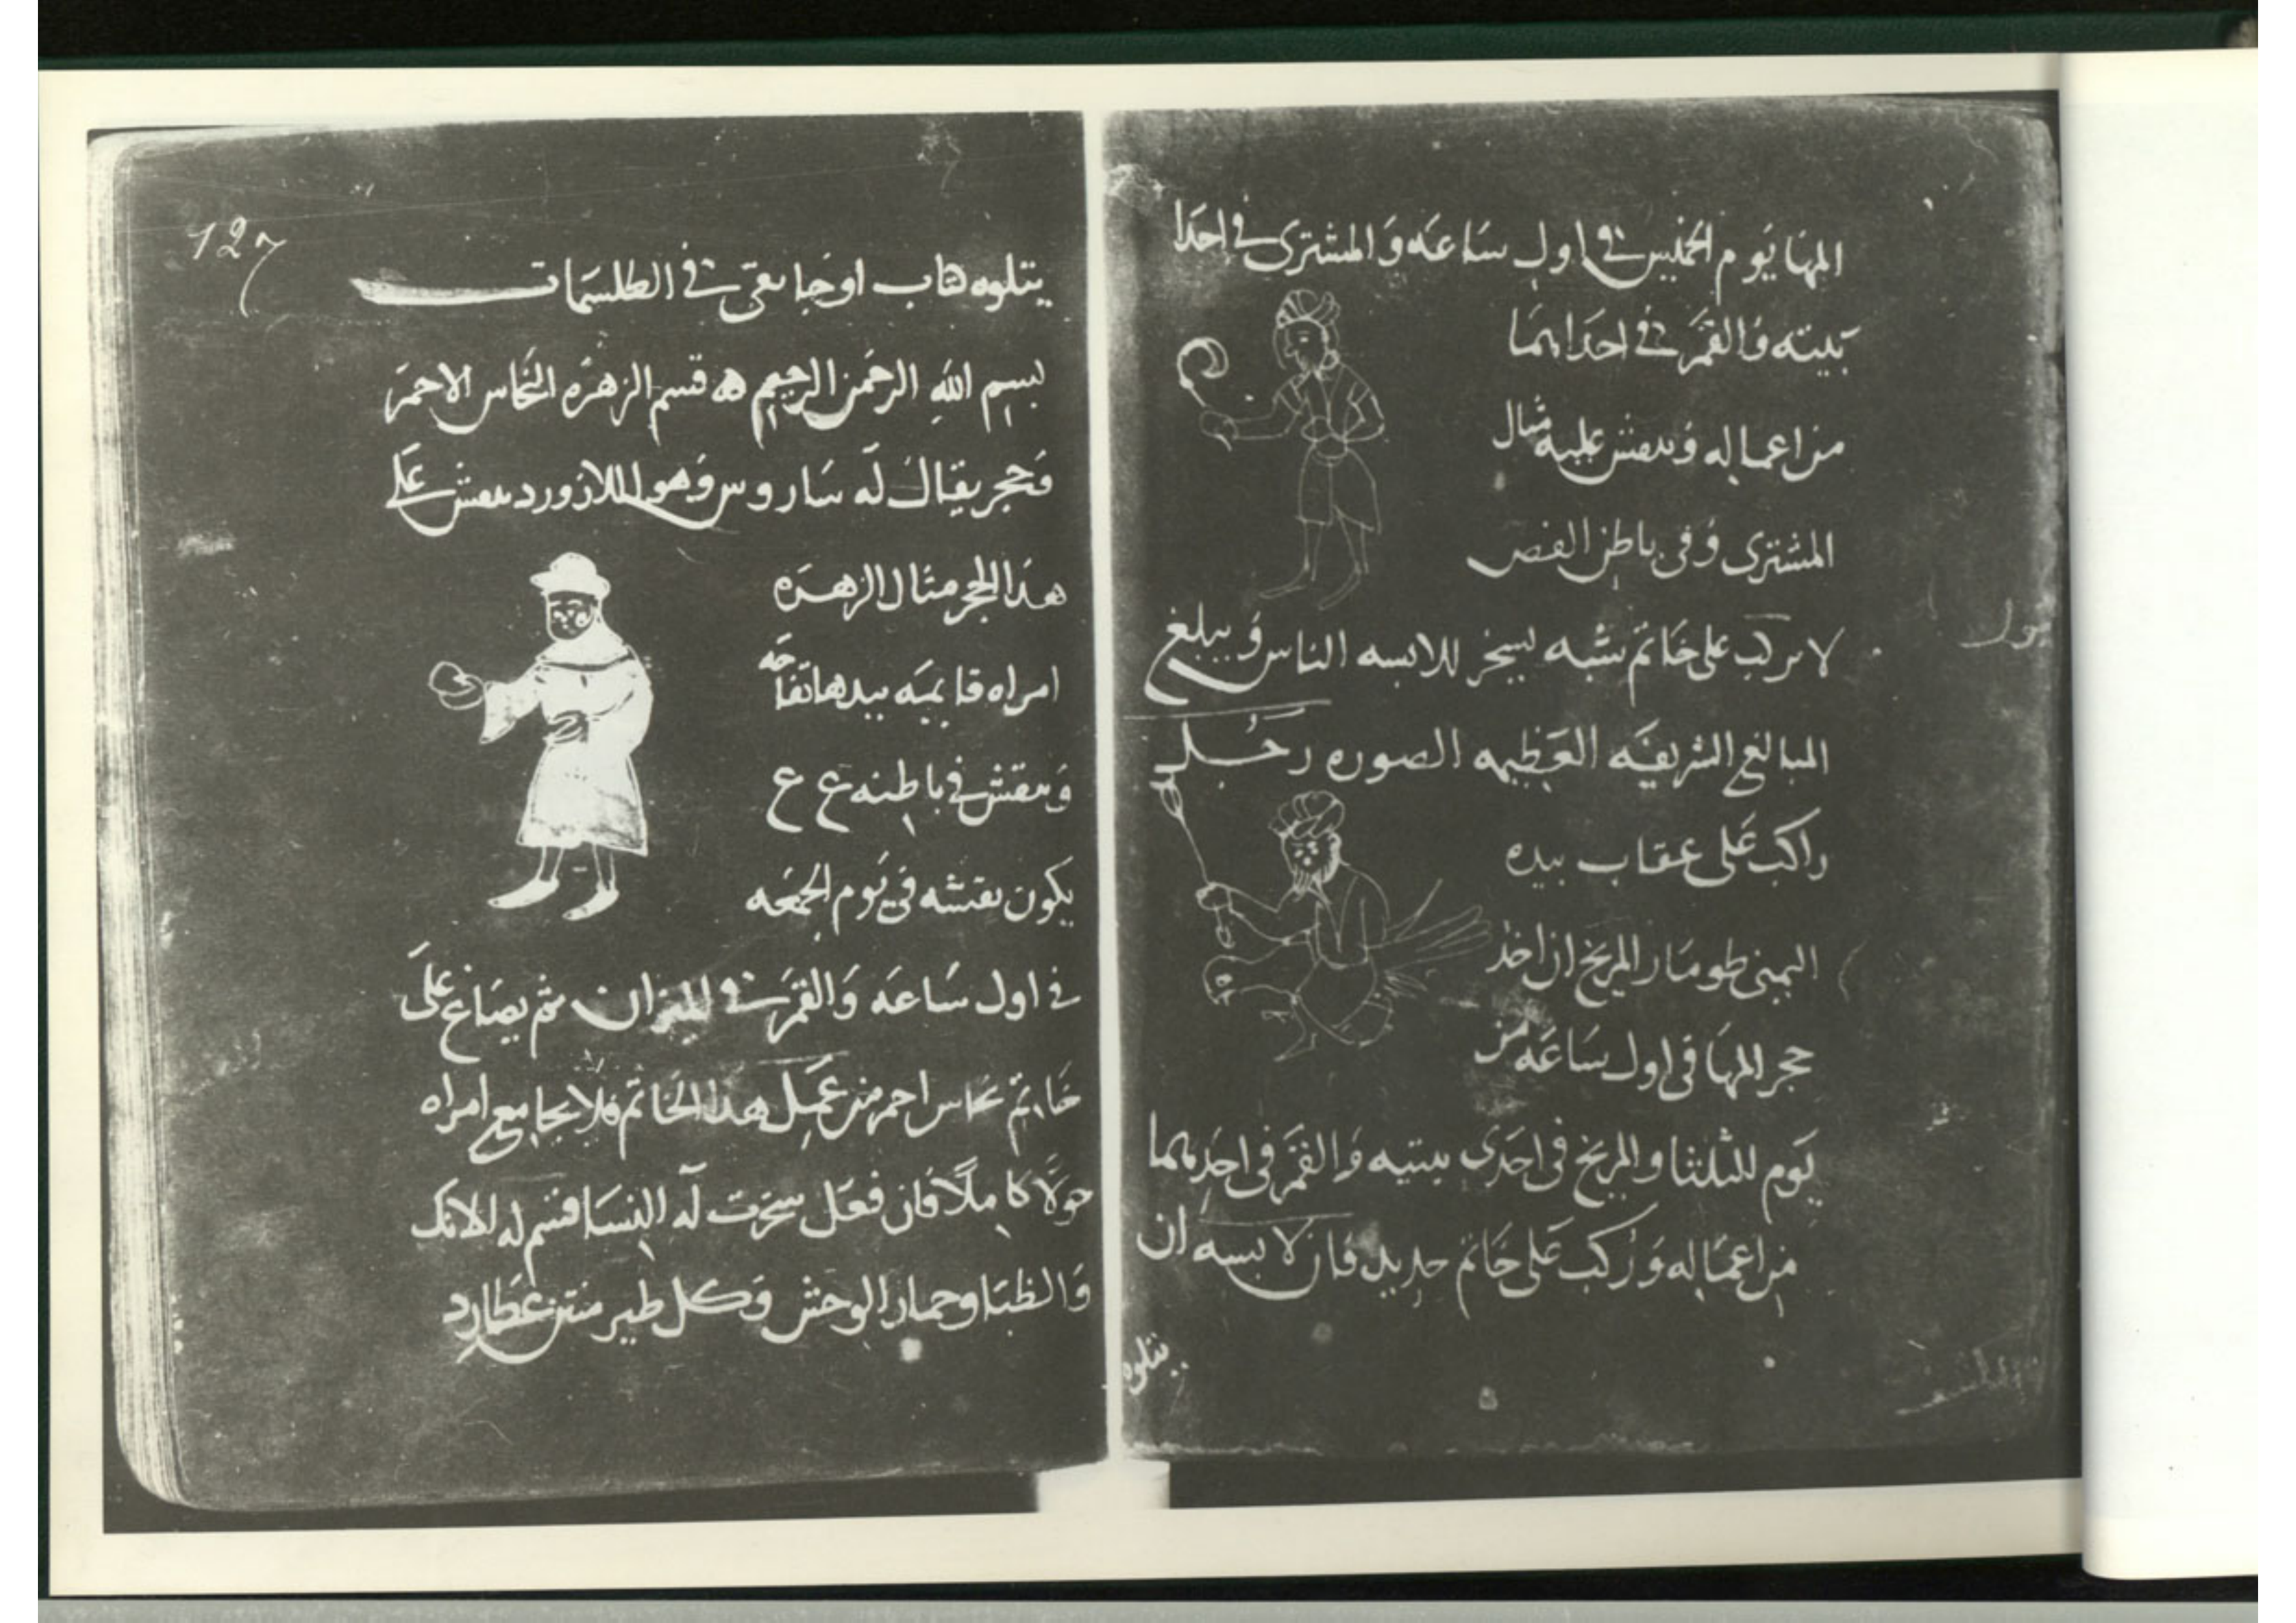 المها يوم الخميس في اول ساعه والمشترى في احدا
بيته والقمر في احدايهما
من اعماله وينقش عليه مثال
المشترى وفى باطن الفص
لا يركب على خاتم شبه ليسخر للابسه الناس ويبلغ
المبالغ الشريفه العظيمه الصوره رجل
راكب على عقاب بيده
اليمنى طومار المريخ ان اخذ
حجر المها فى اول ساعه من
يوم الثلثا والمريخ فى احدى بيتيه والقمر فى احديهما
من اعماله وركب على خاتم حديد فان لابسه ان
يتلوه
127
يتلوه كتاب اوجا نقى فى الطلسمات
بسم الله الرحمن الرحيم قسم الزهره النحاس الاحمر
وحجر يقال له ساروس وهو اللازورد ينقش على
هذا الحجر مثال الزهره
امراه قايمه بيدها تفاحه
وينقش في باطنه ع ع
يكون نقشه فى يوم الجمعه
في اول ساعه والقمر في الميزان ثم يصاغ على
خاتم نحاس احمر من عمل هذا الخاتم فلا يجامع امراه
حولا كاملا فان فعل سخرت له النسا قسم له الانك
والظبا وحمار الوحش وكل طير منتن عطارد